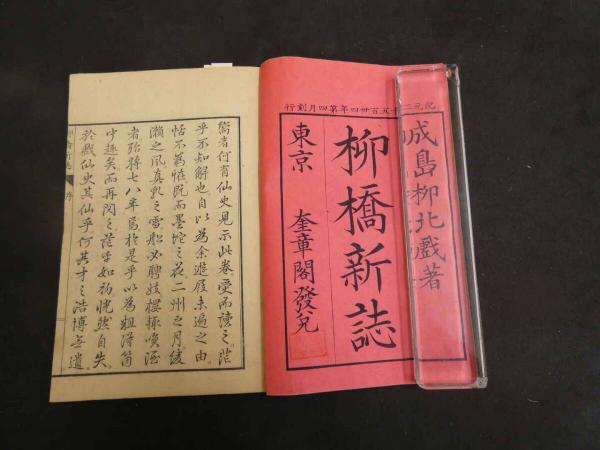 紀元二千五百卅四年第四月刻行
成島柳北戲著
柳橋新誌
東京 奎章閣發兌
嚮者何有仙史見示此卷受而讀之茫
乎不知解也自以為余遊屐未遍之由
恬不為怪既而墨陀之花二州之月綾
瀨之風真乳之雪船必聘妓樓
者殆將七八年焉於是乎以為粗得箇
中趣矣而再閱之茫乎如初恍然自失
於戲仙史其仙乎何其才之浩博無遺